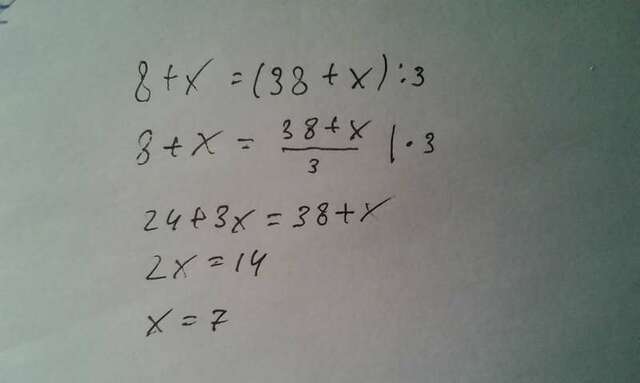 8+x=(38+x):3
8+x=\frac{38+x}{3} |·3
24+3x=38+x
2x=14
x=7